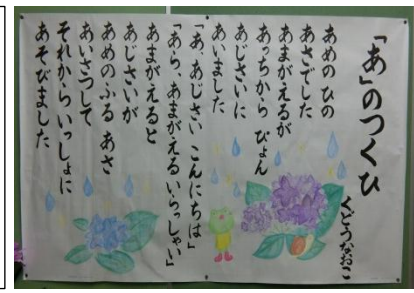 「あ」のつくひ
くどうなおこ
あめの ひの
あさでした
あまがえるが
あっちから ぴょん
あじさいに
あいました
「あ、あじさい こんにちは」
「あら、あまがえる いらっしゃい」
あまがえると
あじさいが
あめのふる あさ
あいさつして
それから いっしょに
あそびました